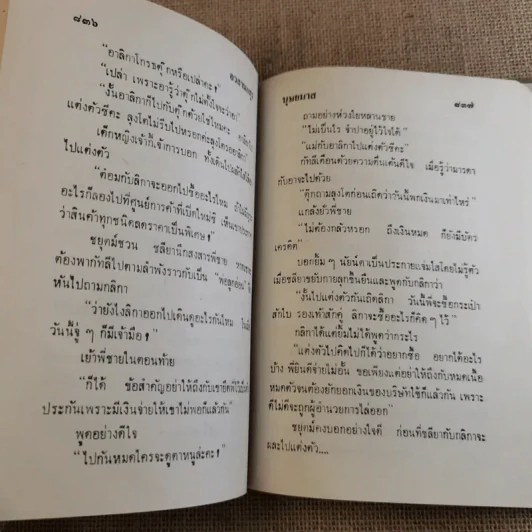 ๘๓๖
"อาลิกาโกรธตุ๊กหรือเปล่าคะ ?"
"เปล่า เพราะอารู้ว่าตุ๊กไม่ตั้งใจจะว่าอา"
"งั้นอาลิกาก็ไปกับตุ๊กด้วยใช่ไหมคะ
แต่งตัวซีคะ ลุงโตไม่รีบไปหรอกค่ะลุงโตรออาลิกา"
เด็กหญิงเจ้ากี้เจ้าการบอก ทั้งเดินไป
ไปแต่งตัว
"ต้อมกับลิกาจะออกไปซื้ออะไรไหม ถ้าไม่
อะไรก็ลองไปที่ศูนย์การค้าที่เปิดใหม่ซิ เห็นเขาประกาศ
ว่าสินค้าทุกชนิดลดราคาเป็นพิเศษ ?"
ชยุตม์ชวน ชลียานึกสงสารพี่ชาย
ต้องพากัทลีไปตามลำพังราวกับเป็น "พ่อลูกอ่อน"
หันไปถามกลิกา
"ว่ายังไงลิกาออกไปเดินดูอะไรกันไหม
วันนี้จู่ ๆ ก็มีเจ้ามือ ?"
เย้าพี่ชายในตอนท้าย
"ก็ได้ ข้อสำคัญอย่าให้ถึงกับเขายึดพี่ไว้เป็น
ประกันเพราะมีเงินจ่ายให้เขาไม่พอก็แล้วกัน"
พูดอย่างดีใจ
"ไปกันหมดใครจะดูตาหนูล่ะคะ ?"
บุษยมาส
๘๓๗
ถามอย่างห่วงใยหลานชาย
"ไม่เป็นไร จำปาอยู่ไว้ใจได้"
"แม่กับอาลิกาไปแต่งตัวซีคะ"
กัทลีเตือนด้วยความตื่นเต้นดีใจ เมื่อรู้ว่ามารดา
กับอาจะไปด้วย
"ตุ๊กถามลุงโตก่อนเถิดว่าวันนี้พกเงินมาเท่าไหร่"
แกล้งยั่วพี่ชาย
"ไม่ต้องกลัวหรอก ถึงเงินหมด ก็ยังมีบัตร
เครดิต"
บอกยิ้ม ๆ นัยน์ตาเป็นประกายแจ่มใสโดยไม่รู้ตัว
เมื่อชลียาขยับกายลุกขึ้นยืนและพูดกับกลิกาว่า
"งั้นไปแต่งตัวกันเถิดลิกา วันนี้พี่จะซื้อกระเป๋า
สักใบ รองเท้าสักคู่ ลิกาจะซื้ออะไรก็คิด ๆ ไว้"
กลิกาได้แต่ยิ้มไม่ได้พูดว่ากระไร
"แต่งตัวไปคิดไปก็ได้ว่าอยากซื้อ อยากได้อะไร
บ้าง พี่ยินดีจ่ายไม่อั้น ขอเพียงแต่อย่าให้ถึงกับหมดเนื้อ
หมดตัวจนต้องยักยอกเงินของบริษัทใช้ก็แล้วกัน เพราะ
ดีไม่ดีจะถูกผู้อำนวยการไล่ออก"
ชยุตม์คงบอกอย่างใจดี ก่อนที่ชลียากับกลิกาจะ
ผละไปแต่งตัว....